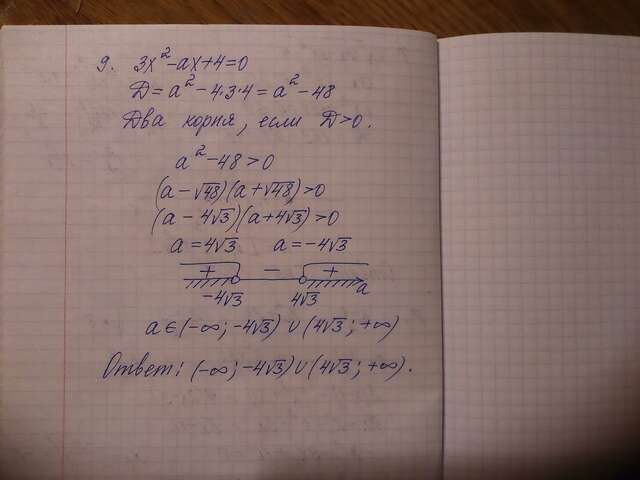 9. 3x²-ax+4=0
D=a²-4·3·4=a²-48
Два корня, если D>0.
a²-48>0
(a-√48)(a+√48)>0
(a-4√3)(a+4√3)>0
a=4√3 a=-4√3
+ - +
-4√3 4√3 a
a∈(-∞; -4√3) ∪ (4√3; +∞)
Ответ: (-∞; -4√3)∪(4√3; +∞).